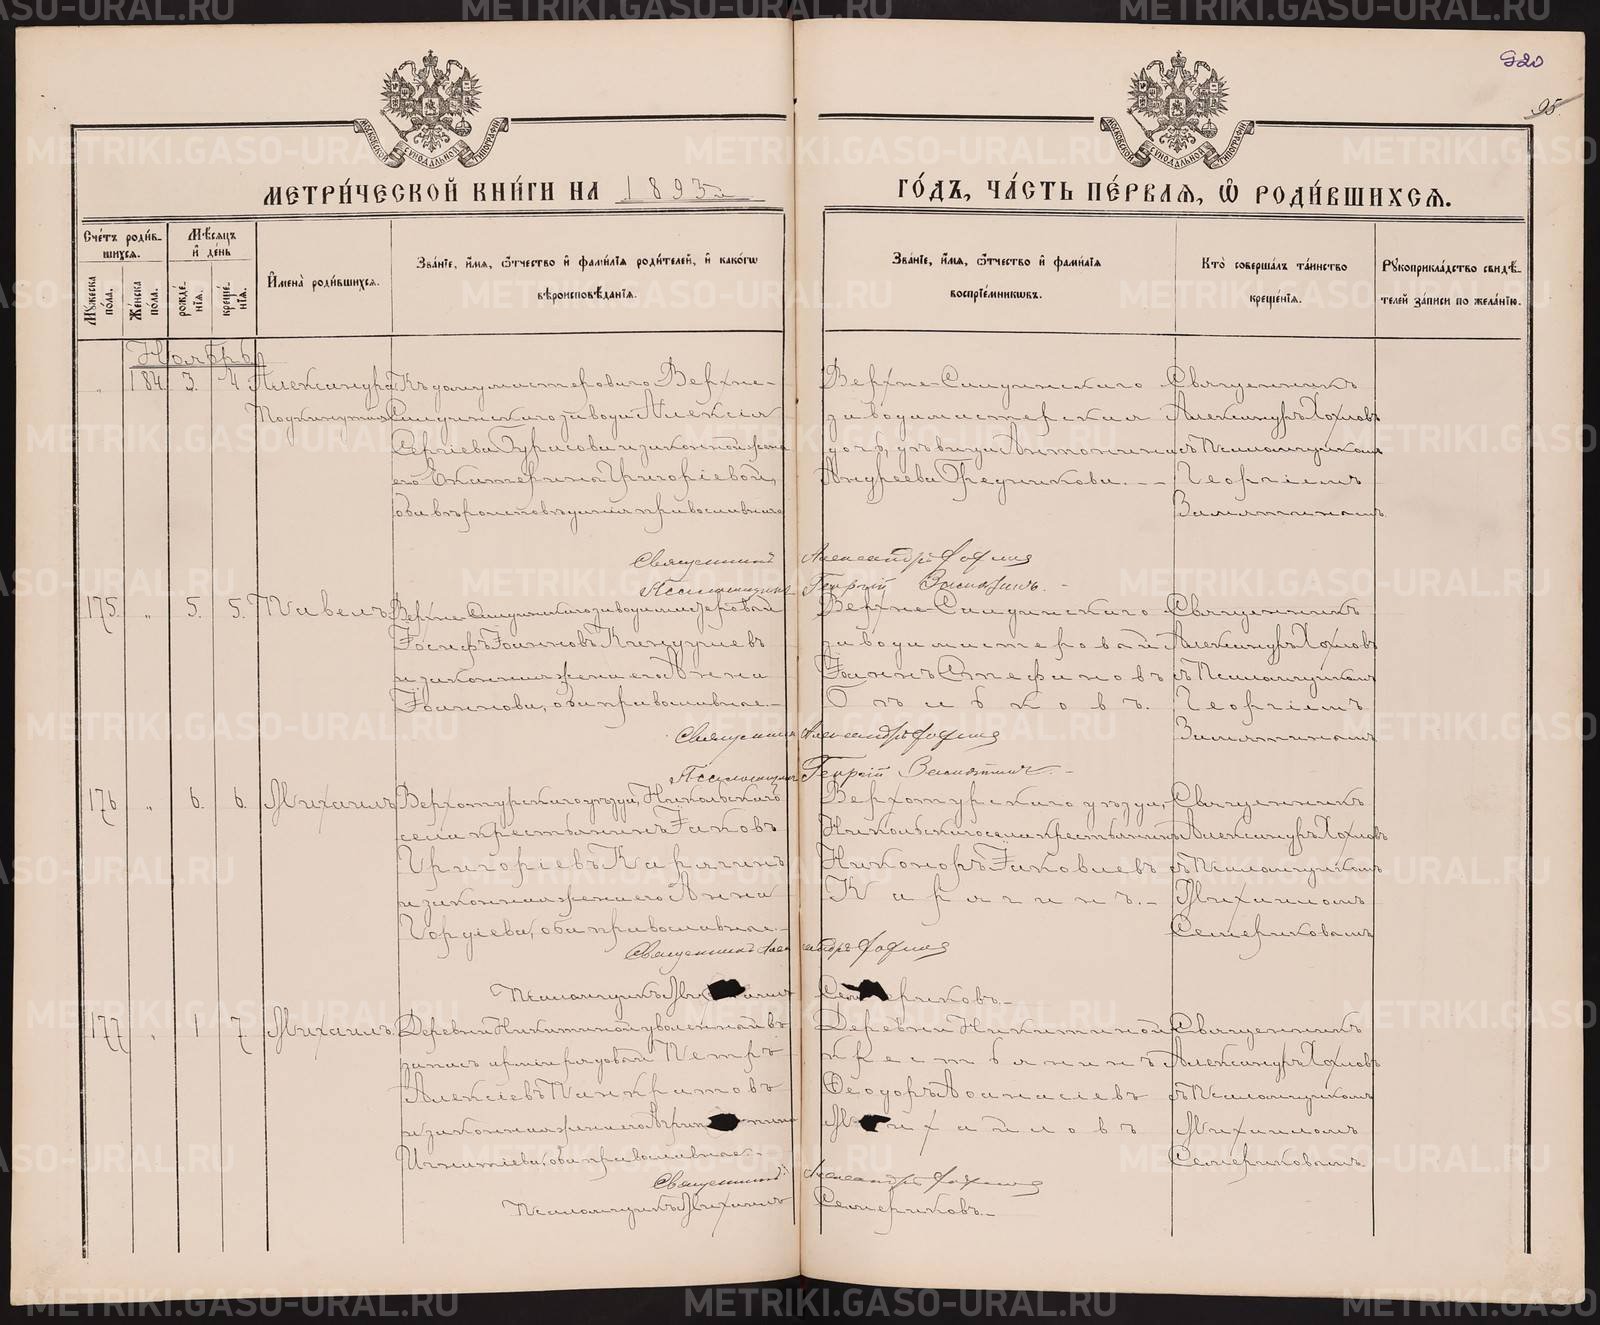 920
95.
МОСКОВСКОЙ СѴНОДАЛЬНОЙ ТИПОГРАФІИ
МОСКОВСКОЙ СѴНОДАЛЬНОЙ ТИПОГРАФІИ
МЕТРИ́ЧЕСКОЙ КНИ́ГИ НА 1893й
ГО́ДЪ, ЧА́СТЬ ПЕ́РВАЯ, Ѡ РОДИ́ВШИХСЯ.
Сче́тъ роди́вшихся.
Мꙋ́жеска по́ла.
Же́нска по́ла.
Мѣ́сяцъ и де́нь
рожде́нія.
креще́нія.
Имена̀ роди́вшихся.
Зва́ніе, и́мя, ѻ́тчество и фами́лія роди́телей, и како́гѡ вѣроисповѣ́данія.
Зва́ніе, и́мя, ѻ́тчество и фами́лія воспріе́мникѡвъ.
Кто̀ соверша́лъ та́инство креще́нія.
Рꙋкоприкла́дство свидѣ́телей за́писи по жела́нію.
Ноябрь
„ 184. 3. 4. Александра
Подкинутая
Къ дому мастероваго Верхне-
Салдинскаго завода Алексія
Сергіева Бурасова и законной жены
его Екатерины Григоріевой,
оба вѣроисповѣданія православнаго
Верхне-Салдинскаго
завода мастерская
дочь, дѣвица Антонина
Андреева Федункова.
Священникъ
Александръ Хохловъ
съ Псаломщикомъ
Георгіемъ
Замятинымъ
Священникъ Александръ Хохловъ
Псаломщикъ Георгій Замятинъ.
175. „ 5. 5. Павелъ
Верхне-Салдинскаго завода мастеровой
Іосифъ Іоанновъ
и законная жена его Анна
Іоаннова, оба православные.
Верхне-Салдинскаго
завода мастеровой
Іоаннъ Стефановъ
Священникъ
Александръ Хохловъ
съ Псаломщикомъ
Георгіемъ
Замятинымъ
Священникъ Александръ Хохловъ
Псаломщикъ Георгій Замятинъ.
176 „ 6. 6. Михаилъ
Верхотурскаго уѣзда, Никольскаго
села крестьянинъ Іаковъ
Григоріевъ Карягинъ
и законная жена его Анна
Гордіева, оба православные.
Верхотурскаго уѣзда,
Никольскаго села крестьянинъ
Никоноръ Іаковлевъ
Карягинъ.
Священникъ
Александръ Хохловъ
съ Псаломщикомъ
Михаиломъ
Семериковымъ
Священникъ Александръ Хохловъ
Псаломщикъ Михаилъ Семериковъ.
177 „ 1 7 Михаилъ
Деревни Никитиной уволенный въ
запасъ арміи рядовой Петръ
Алексіевъ Панкратовъ
и законная жена его
Игнатіева, оба православные.
Деревни Никитиной
крестьянинъ
Ѳеодоръ Аѳанасіевъ
Михайловъ
Священникъ
Александръ Хохловъ
съ Псаломщикомъ
Михаиломъ
Семериковымъ.
Священникъ Александръ Хохловъ
Псаломщикъ Михаилъ Семериковъ.
METRIKI.GASO-URAL.RU